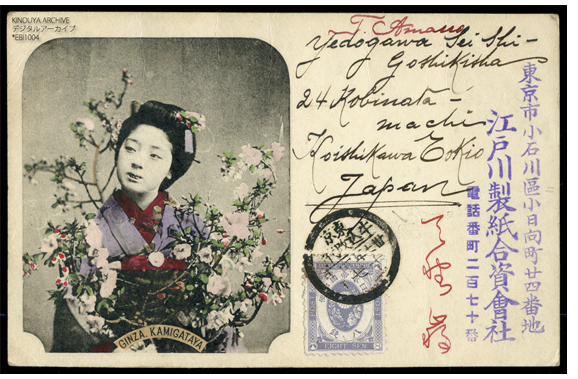 KINOUYA ARCHIVE
デジタルアーカイブ
*EBI1004
GINZA, KAMIGATAYA
T. Amano
Yedogawa Sei Shi-
Goshikisha
24 Kobinata-
machi
Koishikawa Tokio
Japan
東京市小石川區小日向町廿四番地
江戸川製紙合資會社
電話番町二百七十番
EIGHT SEN